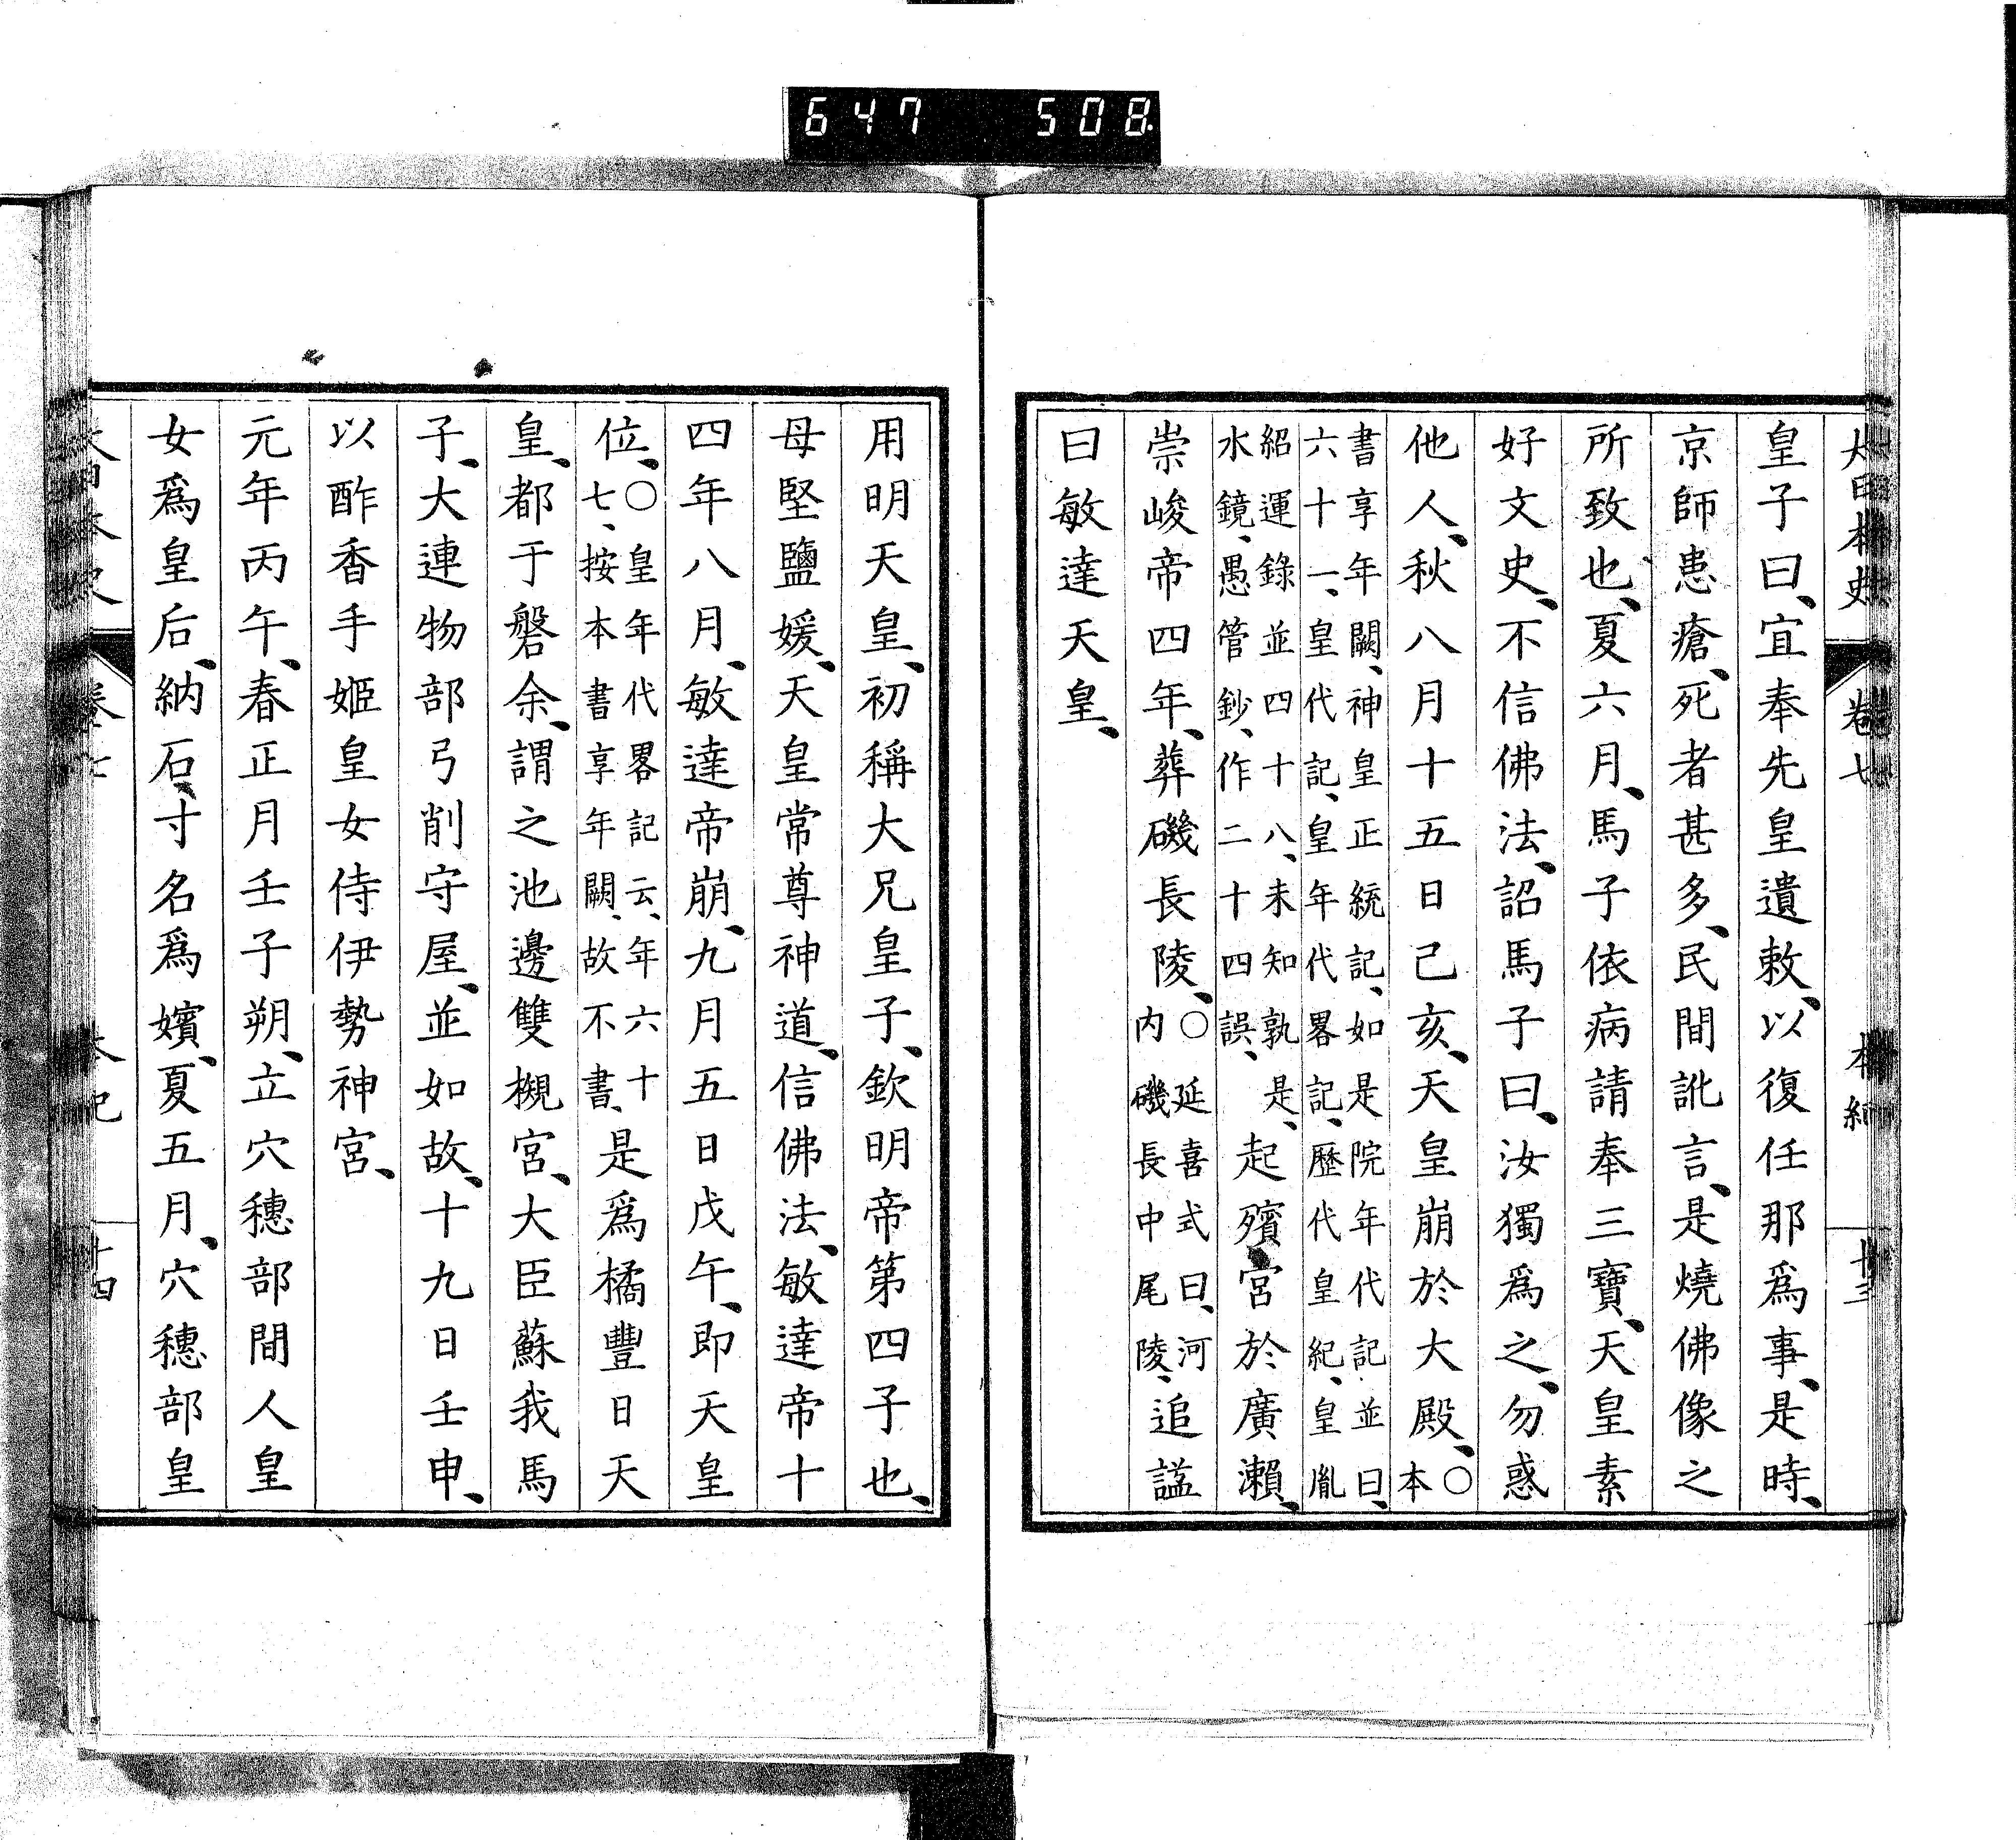 647 508
大日本史 卷七 本紀 十三
皇子曰、宜奉先皇遺敕、以復任那爲事、是時、
京師患瘡、死者甚多、民間訛言、是燒佛像之
所致也、夏六月、馬子依病請奉三寶、天皇素
好文史、不信佛法、詔馬子曰、汝獨爲之、勿惑
他人、秋八月十五日己亥、天皇崩於大殿、○本
書享年闕、神皇正統記、如是院年代記並曰、
六十一、皇代記、皇年代畧記、歷代皇紀、皇胤
紹運錄並四十八、未知孰是、
水鏡、愚管鈔、作二十四誤、
起殯宮於廣瀨、
崇峻帝四年、葬磯長陵、○延喜式曰、河內磯長中尾陵、追謚
曰敏達天皇、
用明天皇、初稱大兄皇子、欽明帝第四子也、
母堅鹽媛、天皇常尊神道、信佛法、敏達帝十
四年八月、敏達帝崩、九月五日戊午、即天皇
位、○皇年代畧記云、年六十七、按本書享年闕、故不書、是爲橘豐日天
皇、都于磐余、謂之池邊雙槻宮、大臣蘇我馬
子、大連物部弓削守屋、並如故、十九日壬申、
以酢香手姬皇女侍伊勢神宮、
元年丙午、春正月壬子朔、立穴穗部間人皇
女爲皇后、納石寸名爲嬪、夏五月、穴穗部皇
本紀 十四